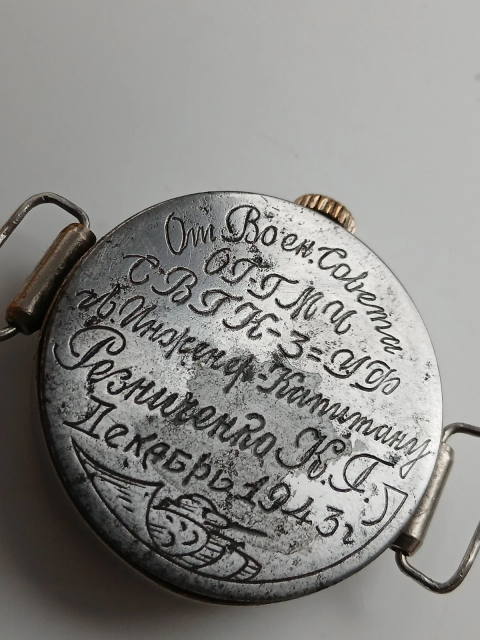 От Воен. Совета
ОГ-ГМЧ
С-ВГК-3=УФ
гв. Инженер-Капитану
Резниченко К.Г.
Декабрь 1943г